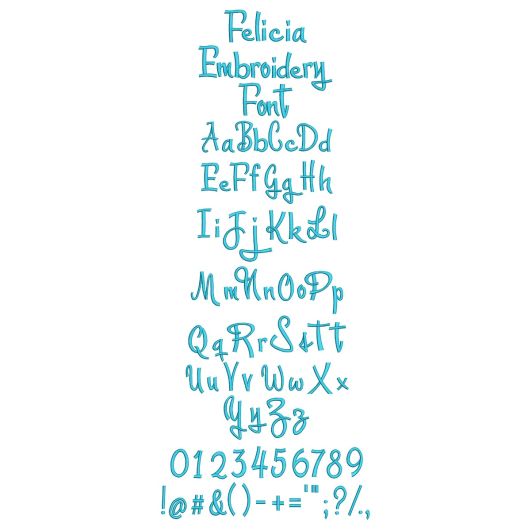 Felicia
Embroidery
Font
AaBbCcDd
EeFfGgHh
IiJjKkLl
MmNnOoPp
QqRrSsTt
UuVvWwXx
YyZz
0123456789
!@#&()-+='";:?/.,